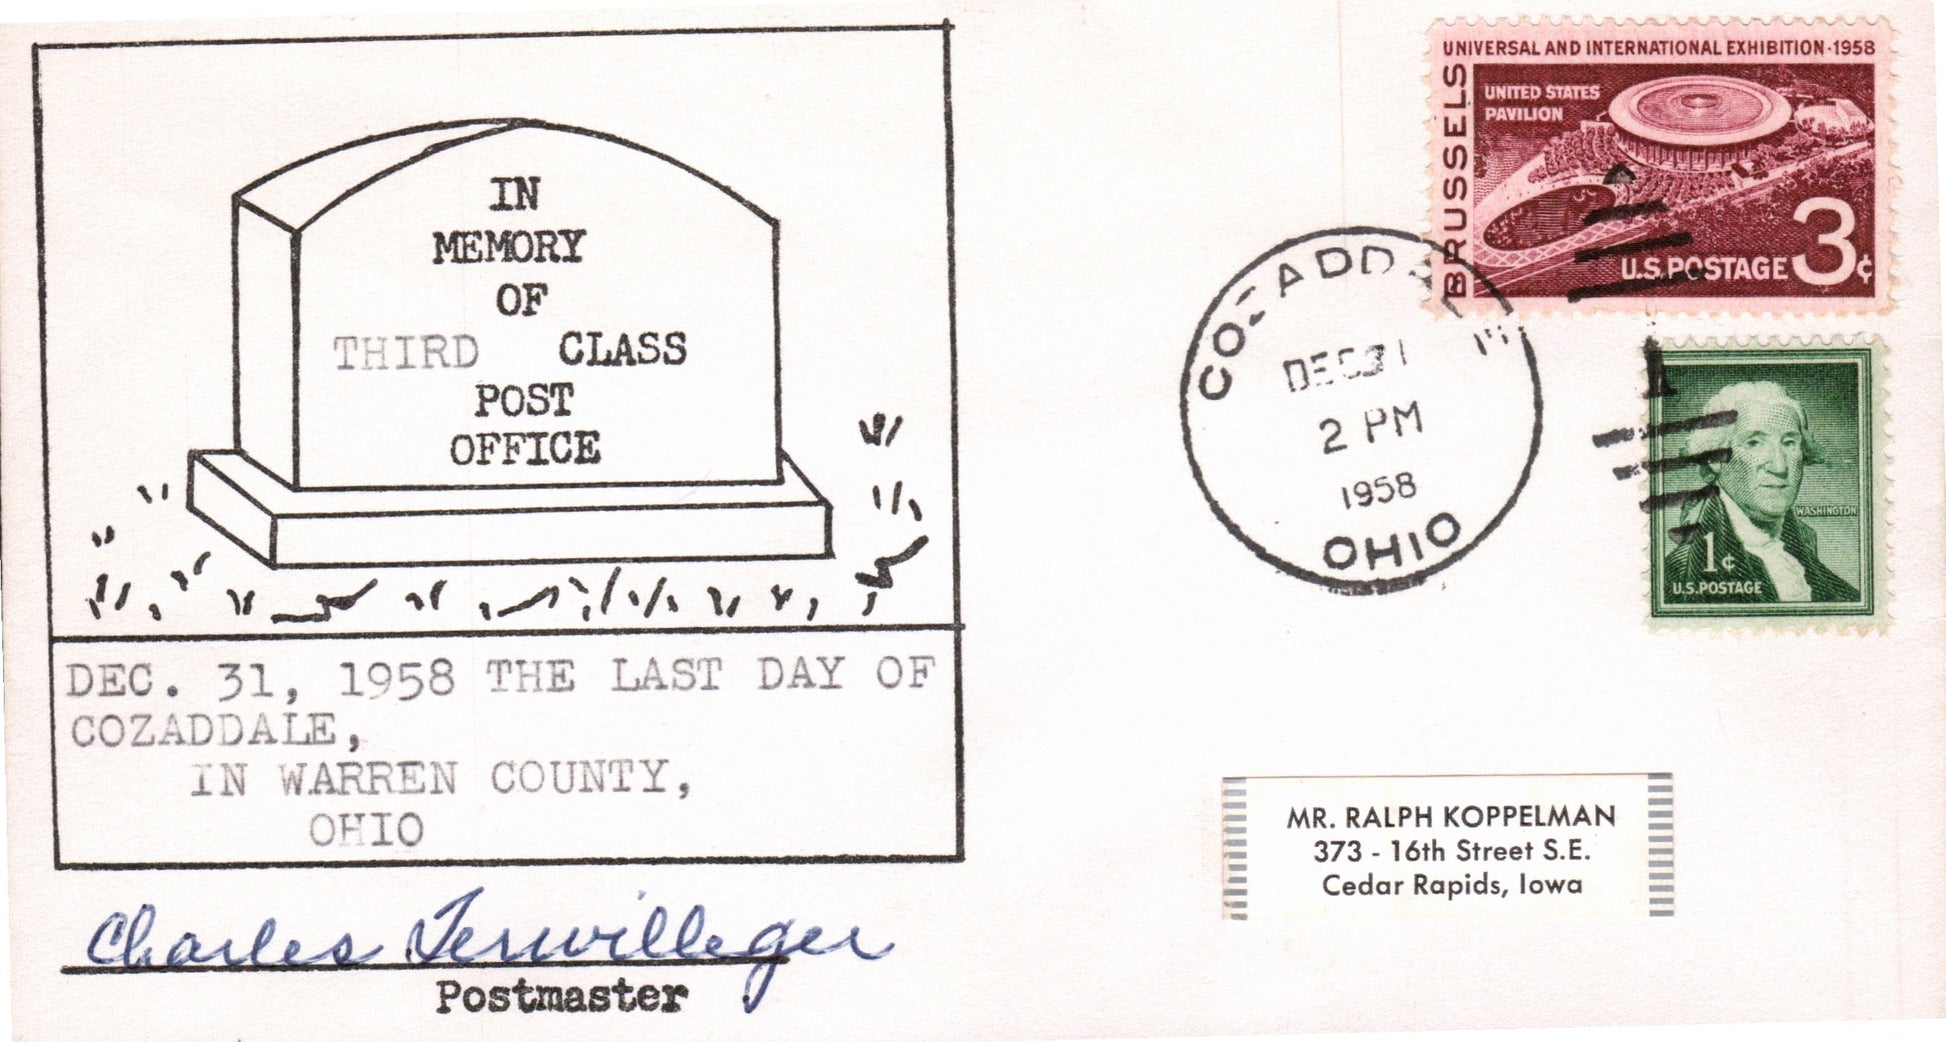 IN
MEMORY
OF
THIRD CLASS
POST
OFFICE
DEC. 31, 1958 THE LAST DAY OF
COZADDALE,
IN WARREN COUNTY,
OHIO
Charles Terwilleger
Postmaster
COZADDALE
DEC 31
2 PM
1958
OHIO
UNIVERSAL AND INTERNATIONAL EXHIBITION · 1958
BRUSSELS
UNITED STATES
PAVILION
U.S. POSTAGE 3¢
WASHINGTON
1¢
U.S. POSTAGE
MR. RALPH KOPPELMAN
373 - 16th Street S.E.
Cedar Rapids, Iowa